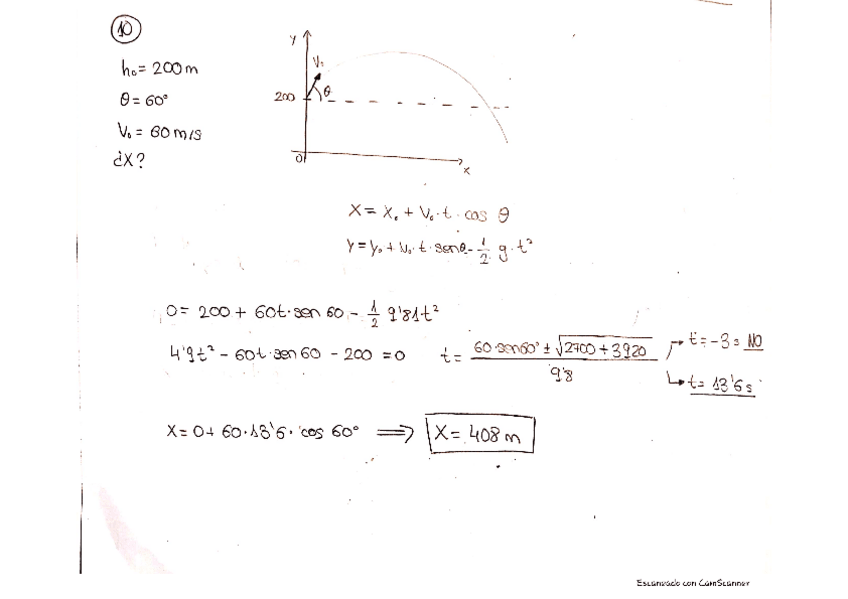 10
h₀ = 200 m
θ = 60°
V₀ = 60 m/s
¿X?
y
V₀
θ
200
0
x
X = X₀ + V₀·t·cos θ
Y = y₀ + V₀·t·senθ - 1/2 g·t²
0 = 200 + 60t·sen 60 - 1/2 9'81t²
4'9t² - 60t·sen 60 - 200 = 0   t = (60·sen60° ± √(2700 + 3920)) / 9'8   t = -3s NO
t = 13'6s
X = 0 + 60·13'6·cos 60° ⟹ X = 408 m
Escaneado con CamScanner